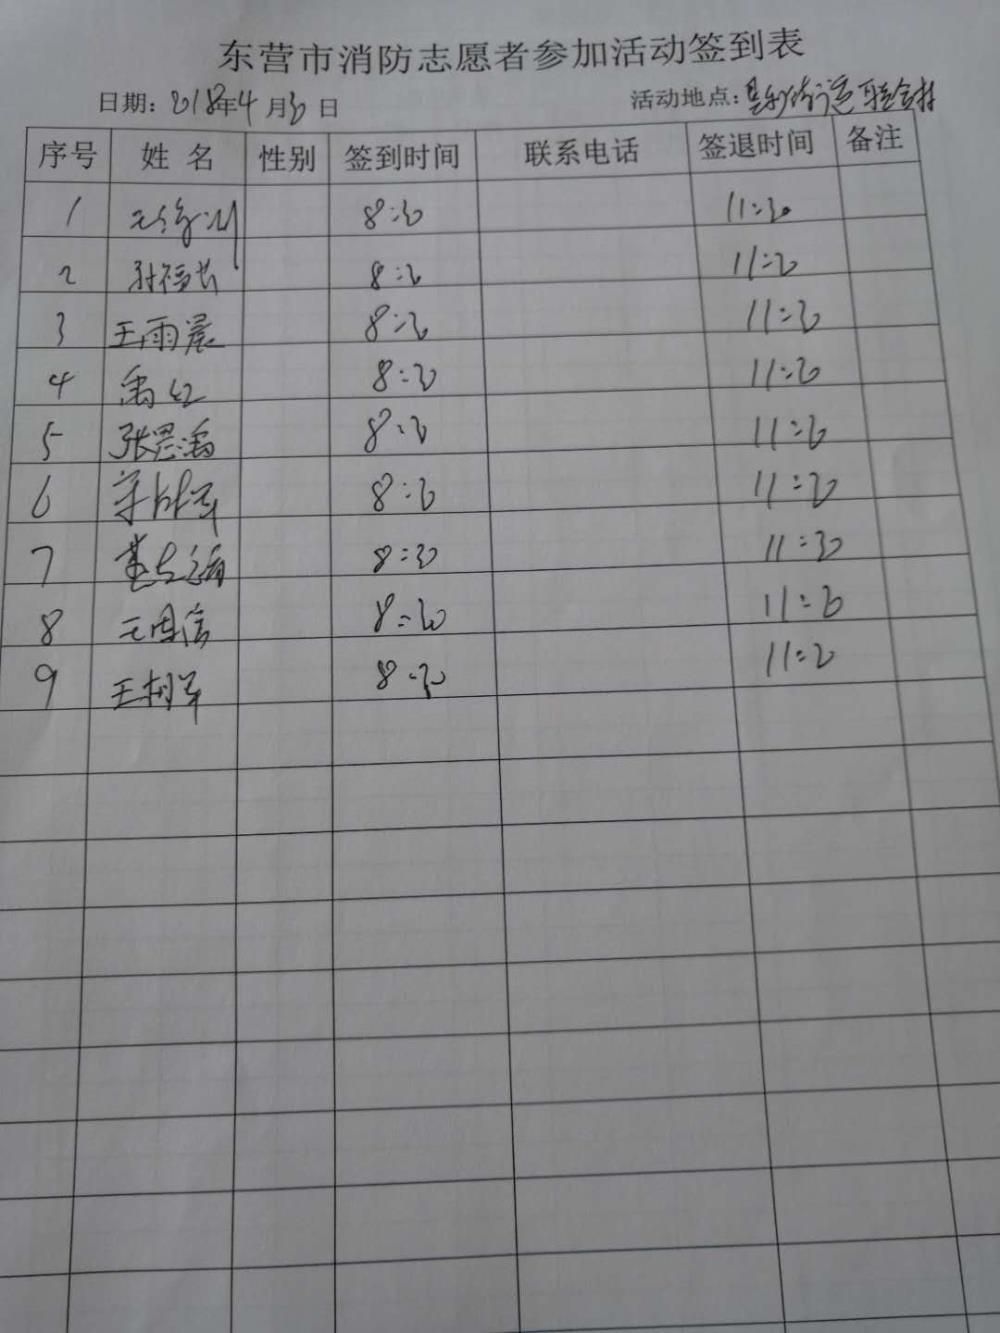 东营市消防志愿者参加活动签到表
日期: 2018年4月30日 活动地点:
序号 姓名 性别 签到时间 联系电话 签退时间 备注
1 8:30 11:30
2 8:30 11:30
3 王雨晨 8:30 11:30
4 禹红 8:30 11:30
5 张思禹 8:30 11:30
6 8:30 11:30
7 8:30 11:30
8 王国信 8:30 11:30
9 王树军 8:30 11:30